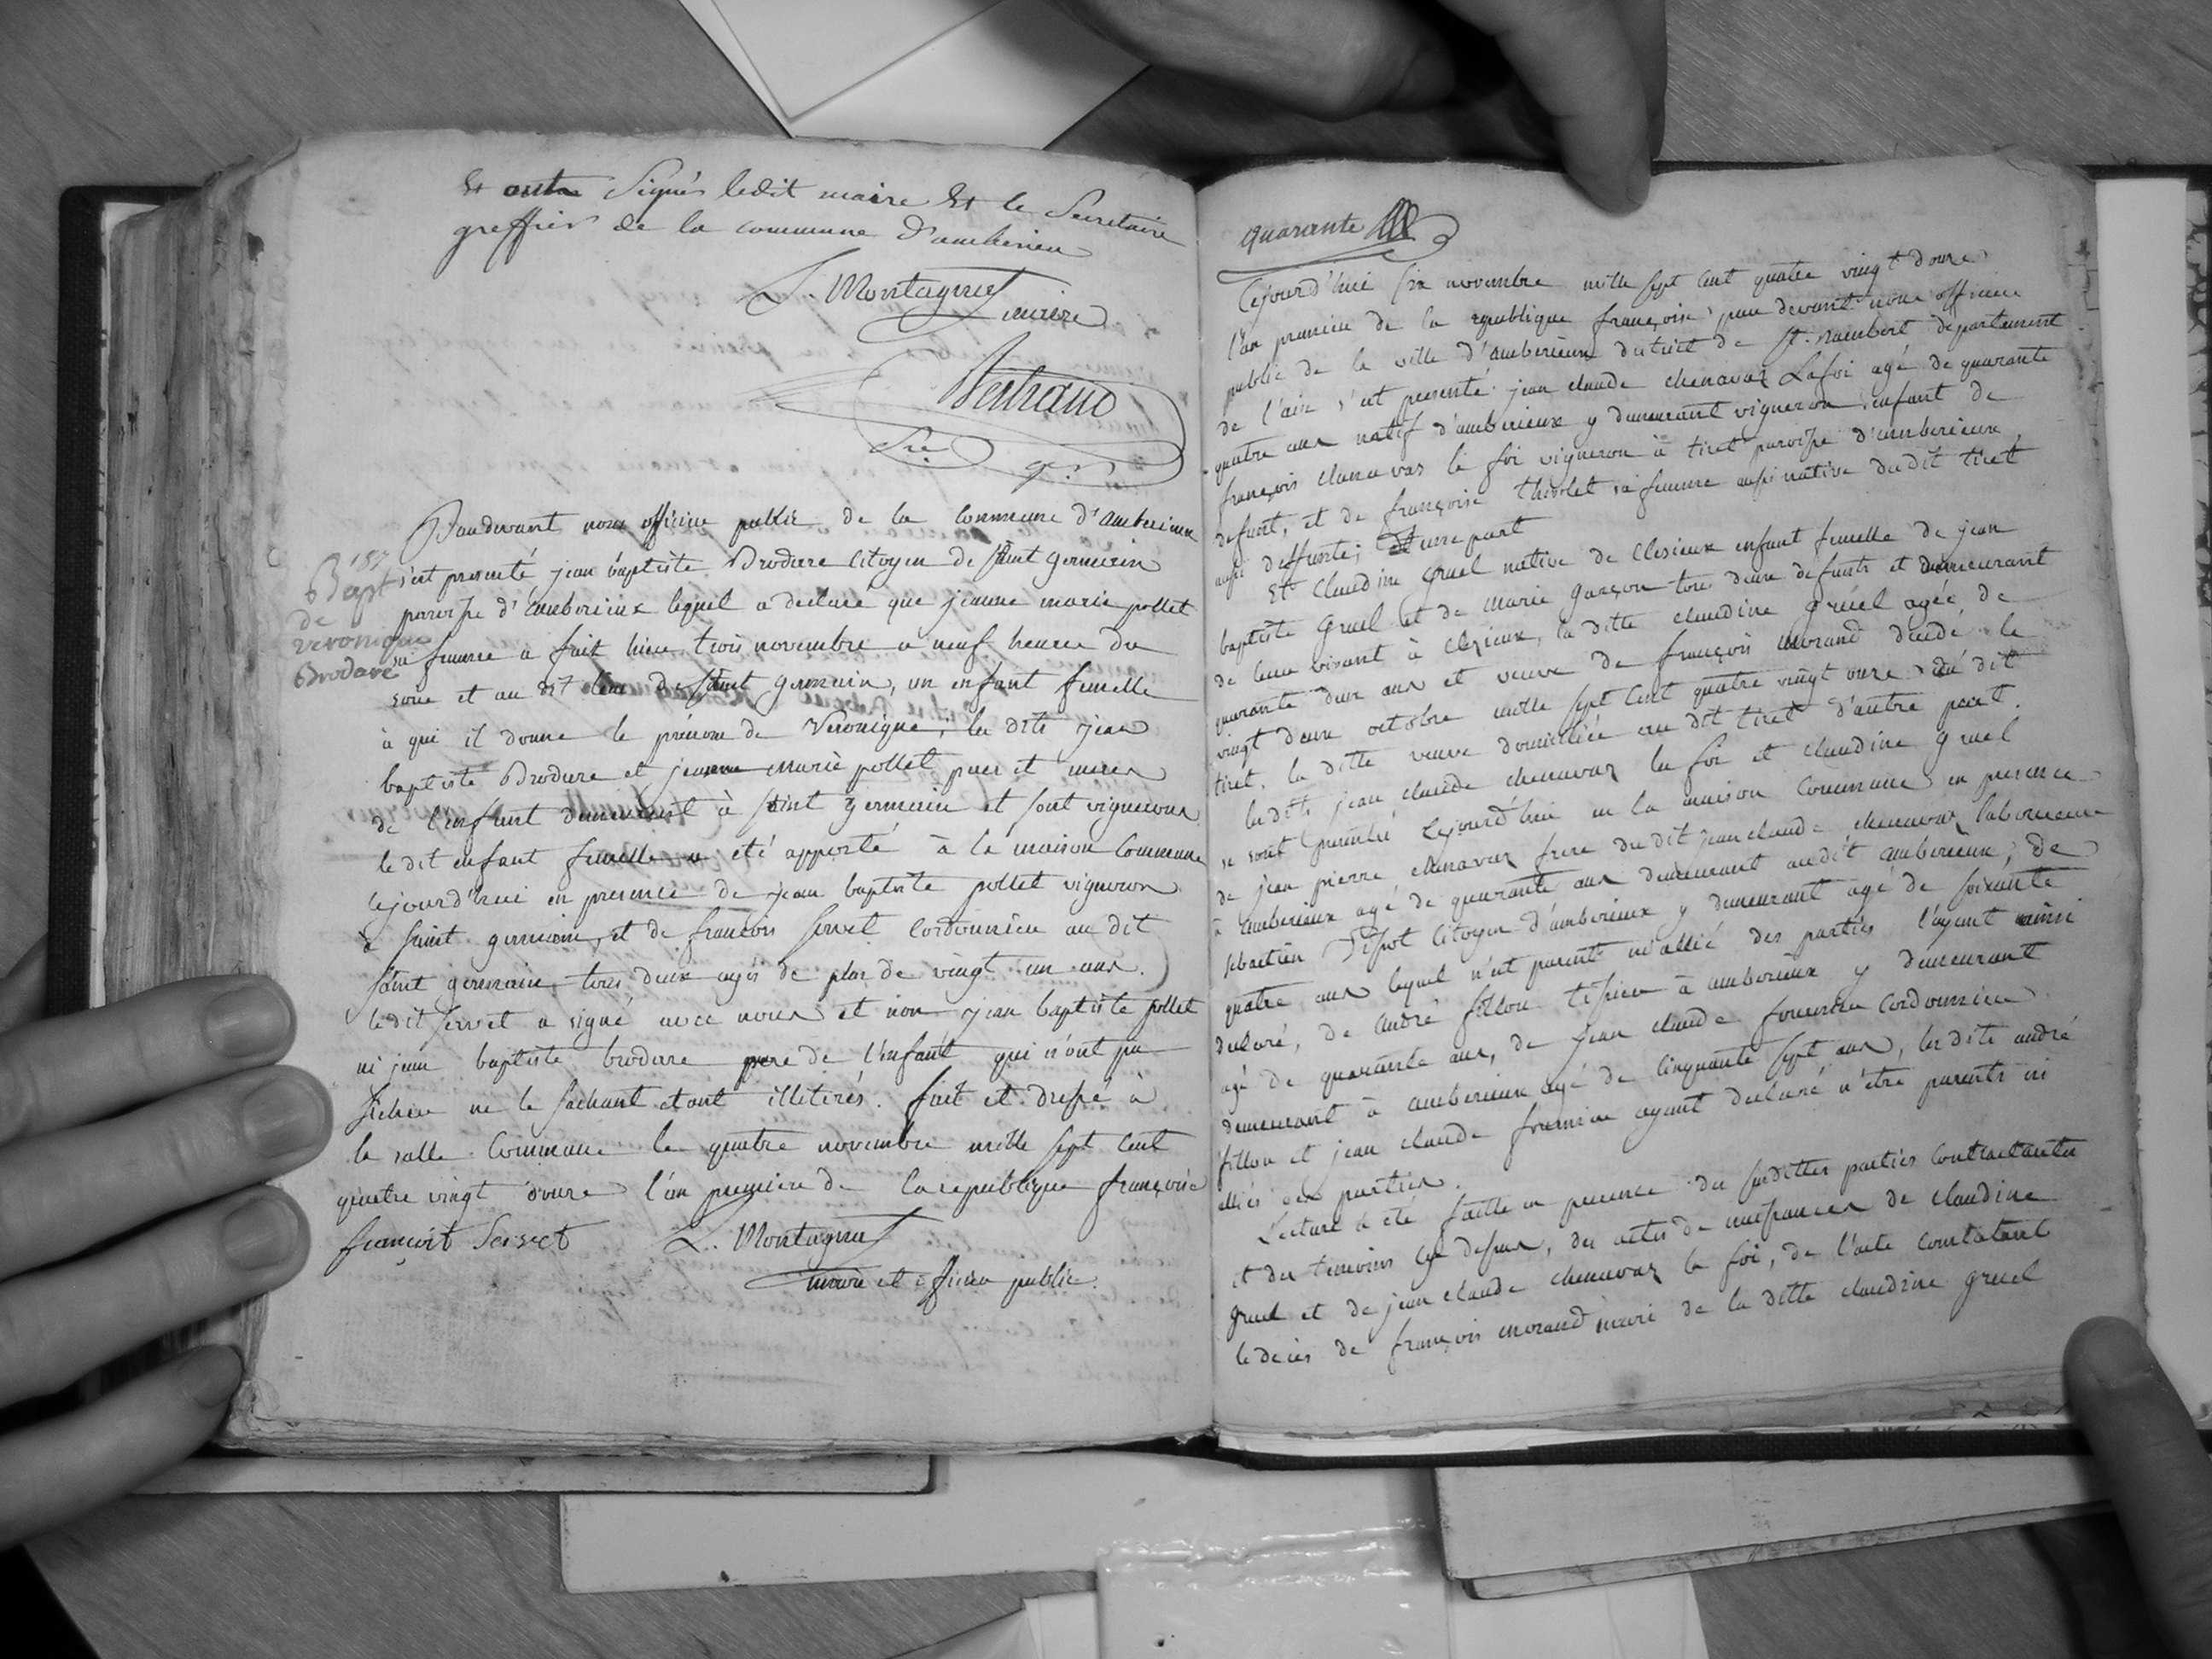 Et outre Signés ledit maire Et le Secretaire
greffier de la commune d'amberieu
L. Montagnat
maire
Bertrand
Sre gr.
187
Bapt
de
veronique
Brodare
Pardevant nous officier public de la Commune d'amberieux
s'est presenté jean baptiste Brodare Citoyen de saint germain
paroisse d'amberieux lequel a declaré que jeanne marie pollet
sa femme a fait hier trois novembre a neuf heures du
soir et au dit lieu de saint germain, un enfant femelle
à qui il donne le prénom de Veronique; les dits jean
baptiste Brodare et jeanne marie pollet peres et meres
de l'enfant demeurent à saint germain et sont vignerons
le dit enfant femelle a été apporté à la maison Commune
cejourd'hui en presence de jean baptiste pollet vigneron
à saint germain, et de francois servet Cordonnier au dit
saint germain tous deux agés de plus de vingt un ans.
ledit servet a signé avec nous et non jean baptiste pollet
ni jean baptiste brodare pere de l'enfant qui n'ont pu
signer ne le sachant etant illetirés. fait et dressé à
la salle Commune le quatre novembre mille sept cent
quatre vingt douze l'an premier de la republique françoise
françoit Servet L. Montagnat
maire et officier public.
quarante
Cejourd'hui six novembre mille sept cent quatre vingt douze
l'an premier de la republique françoise par devant nous officier
public de la ville d'amberieux district de St. rambert departement
de l'ain s'est presenté jean claude chenavaz Lafoi agé de quarante
quatre ans natif d'amberieux y demeurant vigneron enfant de
françois chenavaz la foi vigneron à tiret paroisse d'amberieux
defunt, et de françoise thivolet sa femme aussi native dudit tiret
aussi deffunte; d'une part
Et Claudine Gruel native de Clesieux enfant femelle de jean
baptiste Gruel et de Marie garçon tous deux defunts et demeurant
de leur vivant à Clezieux, la ditte claudine gruel agée de
quarante deux ans et veuve de françois morand decede le
vingt deux octobre mille sept cent quatre vingt onze au dit
tiret, la ditte veuve domiciliée au dit tiret d'autre part.
les dits jean claude chenavaz la foi et claudine gruel
se sont presentés cejourd'hui en la maison Commune en presence
de jean pierre chenavaz frere du dit jean claude chenavaz laboureur
à amberieux agé de quarante ans demeurant audit amberieux, de
sebastien Tissot Citoyen d'amberieux y demeurant agé de soixante
quatre ans lequel n'est parent ni allié des parties l'ayant ainsi
declaré, de andré fillon tissier à amberieux y demeurant
agé de quarante ans, de jean claude fournier Cordonnier
demeurant à amberieux agé de Cinquante sept ans, les dits andré
fillon et jean claude fournier ayant declaré n'être parents ni
alliés des parties.
Lecture a eté faitte en presence des susdittes parties Contractantes
et des temoins cy dessus, des actes de naissances de claudine
gruel et de jean claude chenavaz la foi, de l'acte constatant
le deces de françois morand mari de la ditte claudine gruel